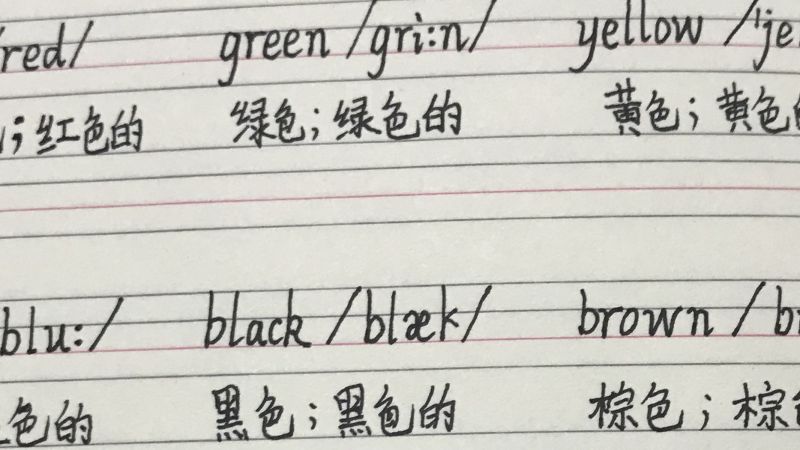 red/ green /gri:n/ yellow /'je
；红色的 绿色；绿色的 黄色；黄色
blu:/ black /blæk/ brown /b
色的 黑色；黑色的 棕色；棕